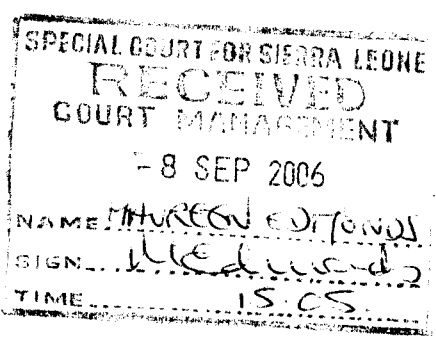 SPECIAL COURT FOR SIERRA LEONE
RECEIVED
COURT MANAGEMENT
- 8 SEP 2006
NAME MAUREEN EDMONDS
SIGN
TIME 15.05